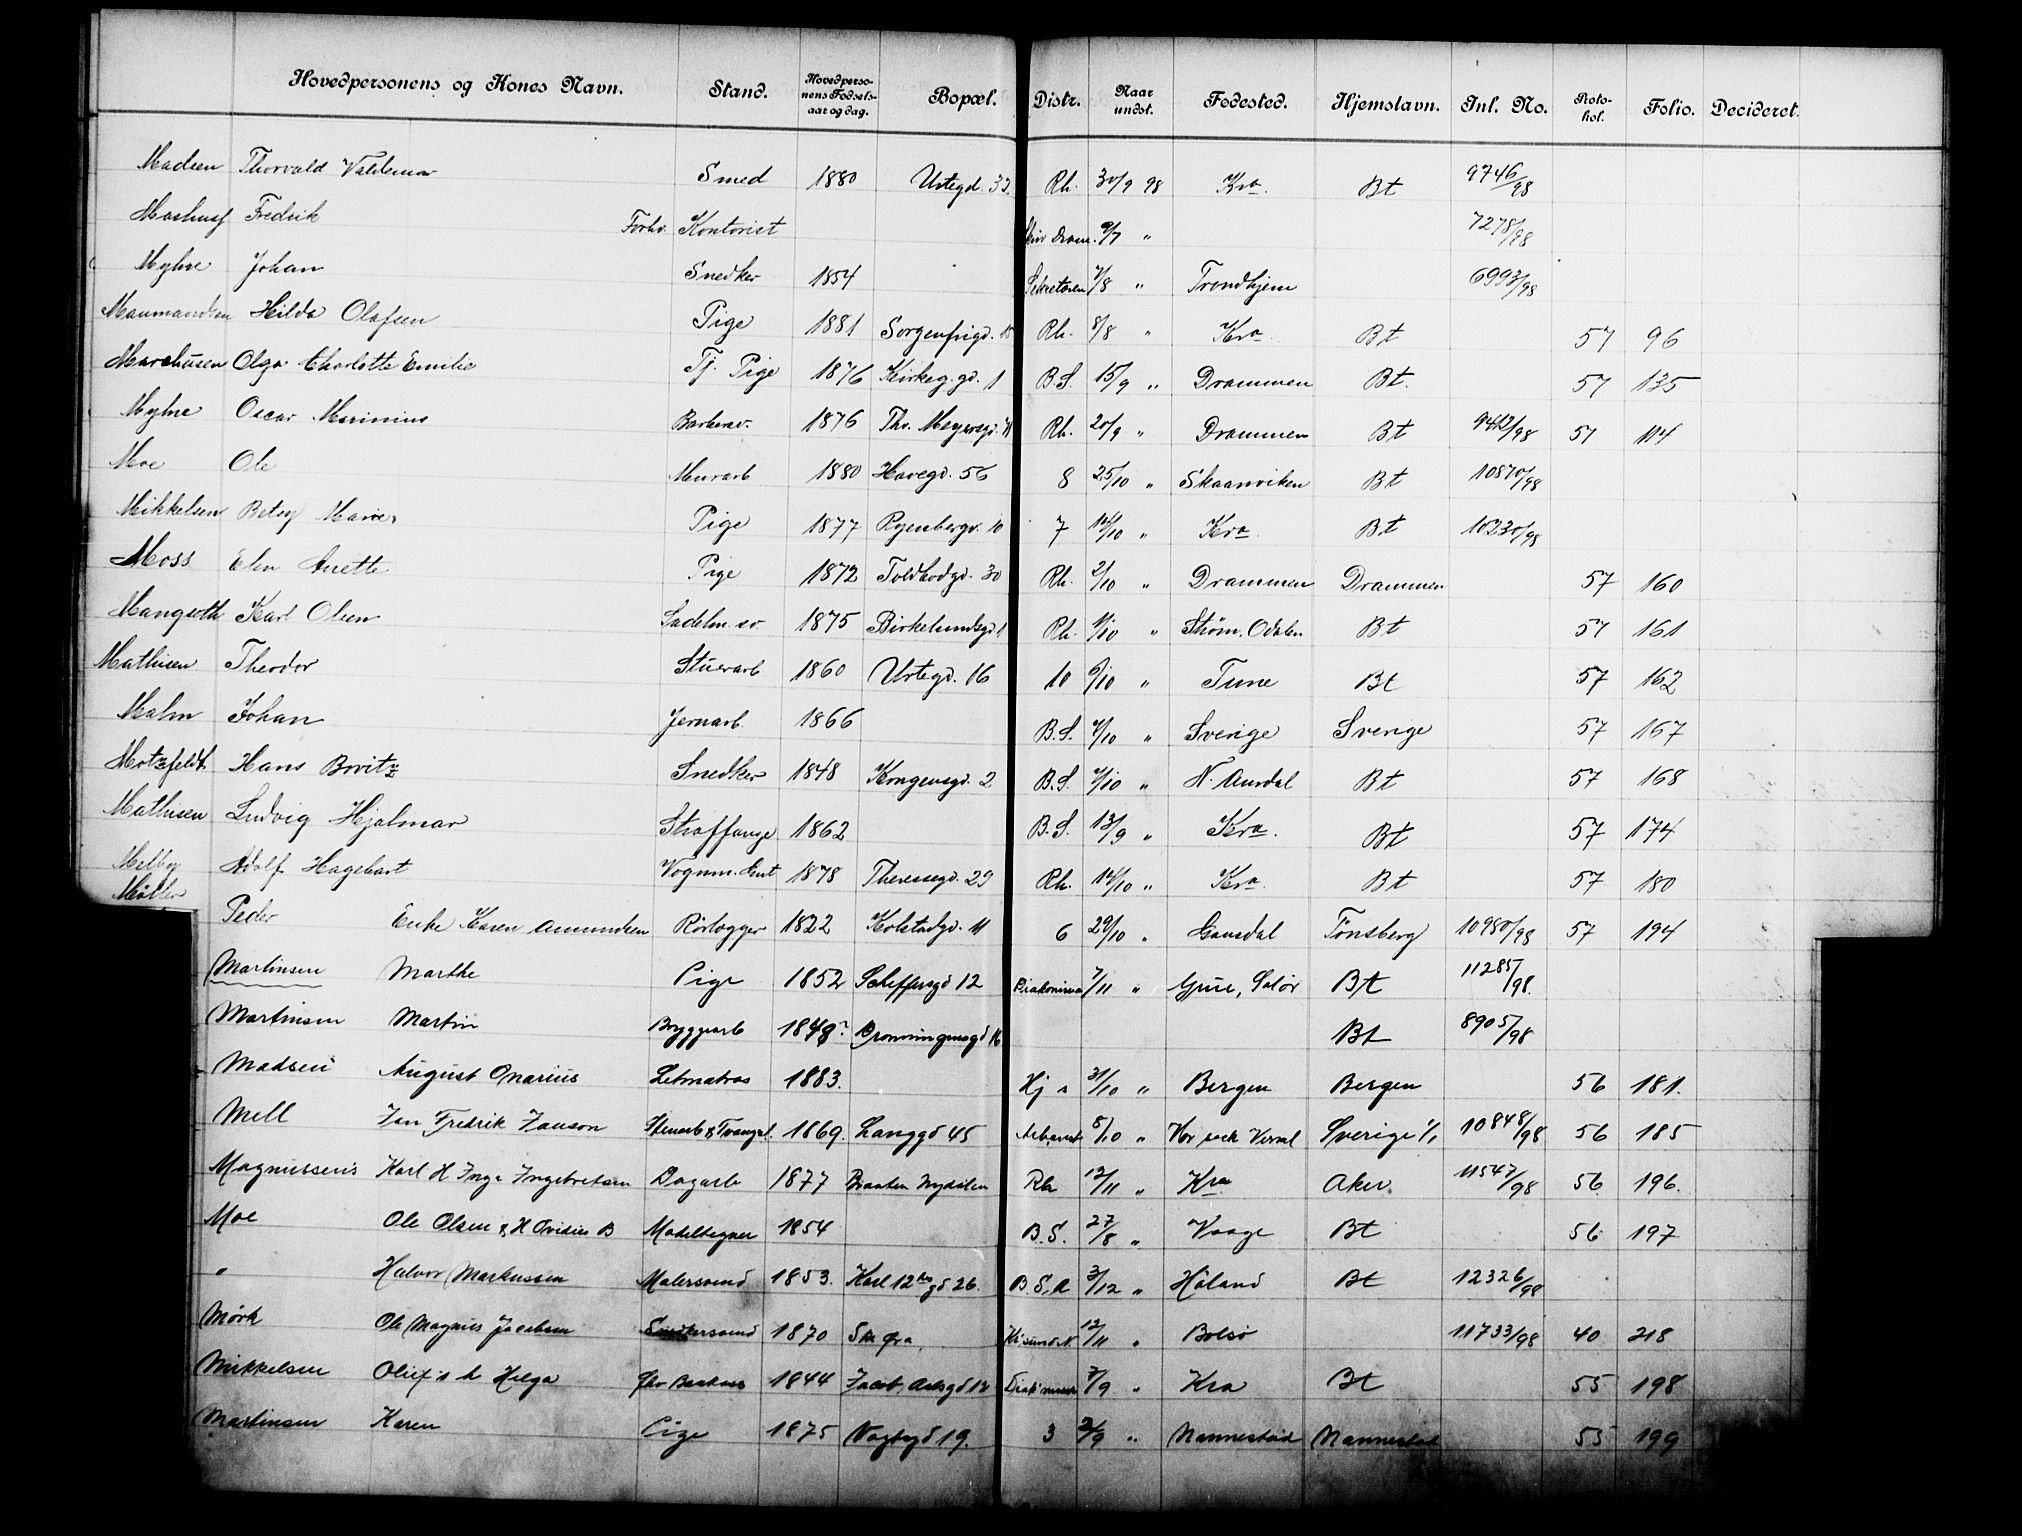 Hovedpersonens og Kones Navn. Stand. Hovedpersonens Fødselsaar og dag. Bopæl. Distr. Naar undst. Fødested. Hjemstavn. Inl. No. Protokol. Folio. Decideret.
Madsen Thorvald Valdemar Smed 1880 Urtegd. 33 Rh. 30/9 98 Kra. Bt 9746/98
Fredrik Forhv. Kontorist 9/7 " 7278/98
Myhre Johan Snedker 1854 Sekretæren 4/8 " Trondhjem 6993/98
Hilda Olafsen Pige 1881 Sorgenfrigd. 15 Rh. 8/8 " Kra Bt 57 96
Olga Charlotte Emilie Tj. Pige 1876 Kirkeg.gd. 1 B.S. 15/9 " Drammen Bt. 57 135
Myhre Oscar Marinius Barbersv. 1876 Thv. Meyersgd. Rh. 20/9 " Drammen Bt 9412/98 57 114
Moe Ole Murarb 1880 Havegd. 56 8 25/10 " Skaanviken Bt 10870/98
Mikkelsen Betsy Marie Pige 1877 Ryenbergv. 10 7 14/10 " Kra. Bt 10230/98
Moss Elen Anette Pige 1872 Toldbodgd. 30 Rh. 2/10 " Drammen Drammen 57 160
Karl Olsen Sadelm.sv. 1875 Birkelundsgd 1 Rh. 4/10 " Strøm, Odalen Bt 57 161
Mathisen Theodor Stuerarb 1860 Urtegd. 16 10 6/10 " Tune Bt 57 162
Malm Johan Jernarb. 1866 B.S. 4/10 " Sverige Sverige 57 167
Motzfeldt Hans Bovitz Snedker 1848 Kongensgd. 2 B.S. 4/10 " N. Aurdal Bt 57 168
Mathisen Ludvig Hjalmar Straffange 1862 B.S. 13/9 " Kra. Bt 57 174
Melby Adolf Hagebart Vognm. 1878 Theresegd. 29 Rh. 14/10 " Kra. Bt 57 180
Møller Peder Enke Karen Amundsen Rørlægger 1822 Kolstadgd. 11 6 29/10 " Gausdal Tønsberg 10980/98 57 194
Martinsen Marthe Pige 1852 Schøffersgd 12 7/11 " Grue, Solør Bt 11285/98
Martinsen Martin Bryggearb 1848? Dronningensgd 16 Bt 8905/98
Madsen August Marius Letmatros 1883. Hj a 31/10 " Bergen Bergen 56 181.
Mell Jan Fredrik Janson 1869. Langgd 45 8/10 " Sverige 1/1 10848/98 56 185
Magnussens Karl H Inga Ingebretsen Dagarb 1877 Braaten Nydalen Rh 12/11 " Kra Aker 11547/98 56 196.
Moe Ole Olsen & H Ovidius B Modeltegner 1854 B.S. 27/8 " Vaage Bt 56 197
" Halvor Markussen Malersvend 1853. Karl 12tes gd 26. B.S.A 3/12 " Høland Bt 12326/98
Mørk Ole Magnus Jacobsen Snedkersvend 1870 Sm Øra Kr.sund N. 12/11 " Bolsø 11733/98 40 218
Mikkelsen Helga 1844 Jacob Aalsgd 12 7/9 " Kra Bt 55 198
Martinsen Karen Pige 1875 Vogtsgd 19. 3 2/9 " Nannestad Nannestad 55 199